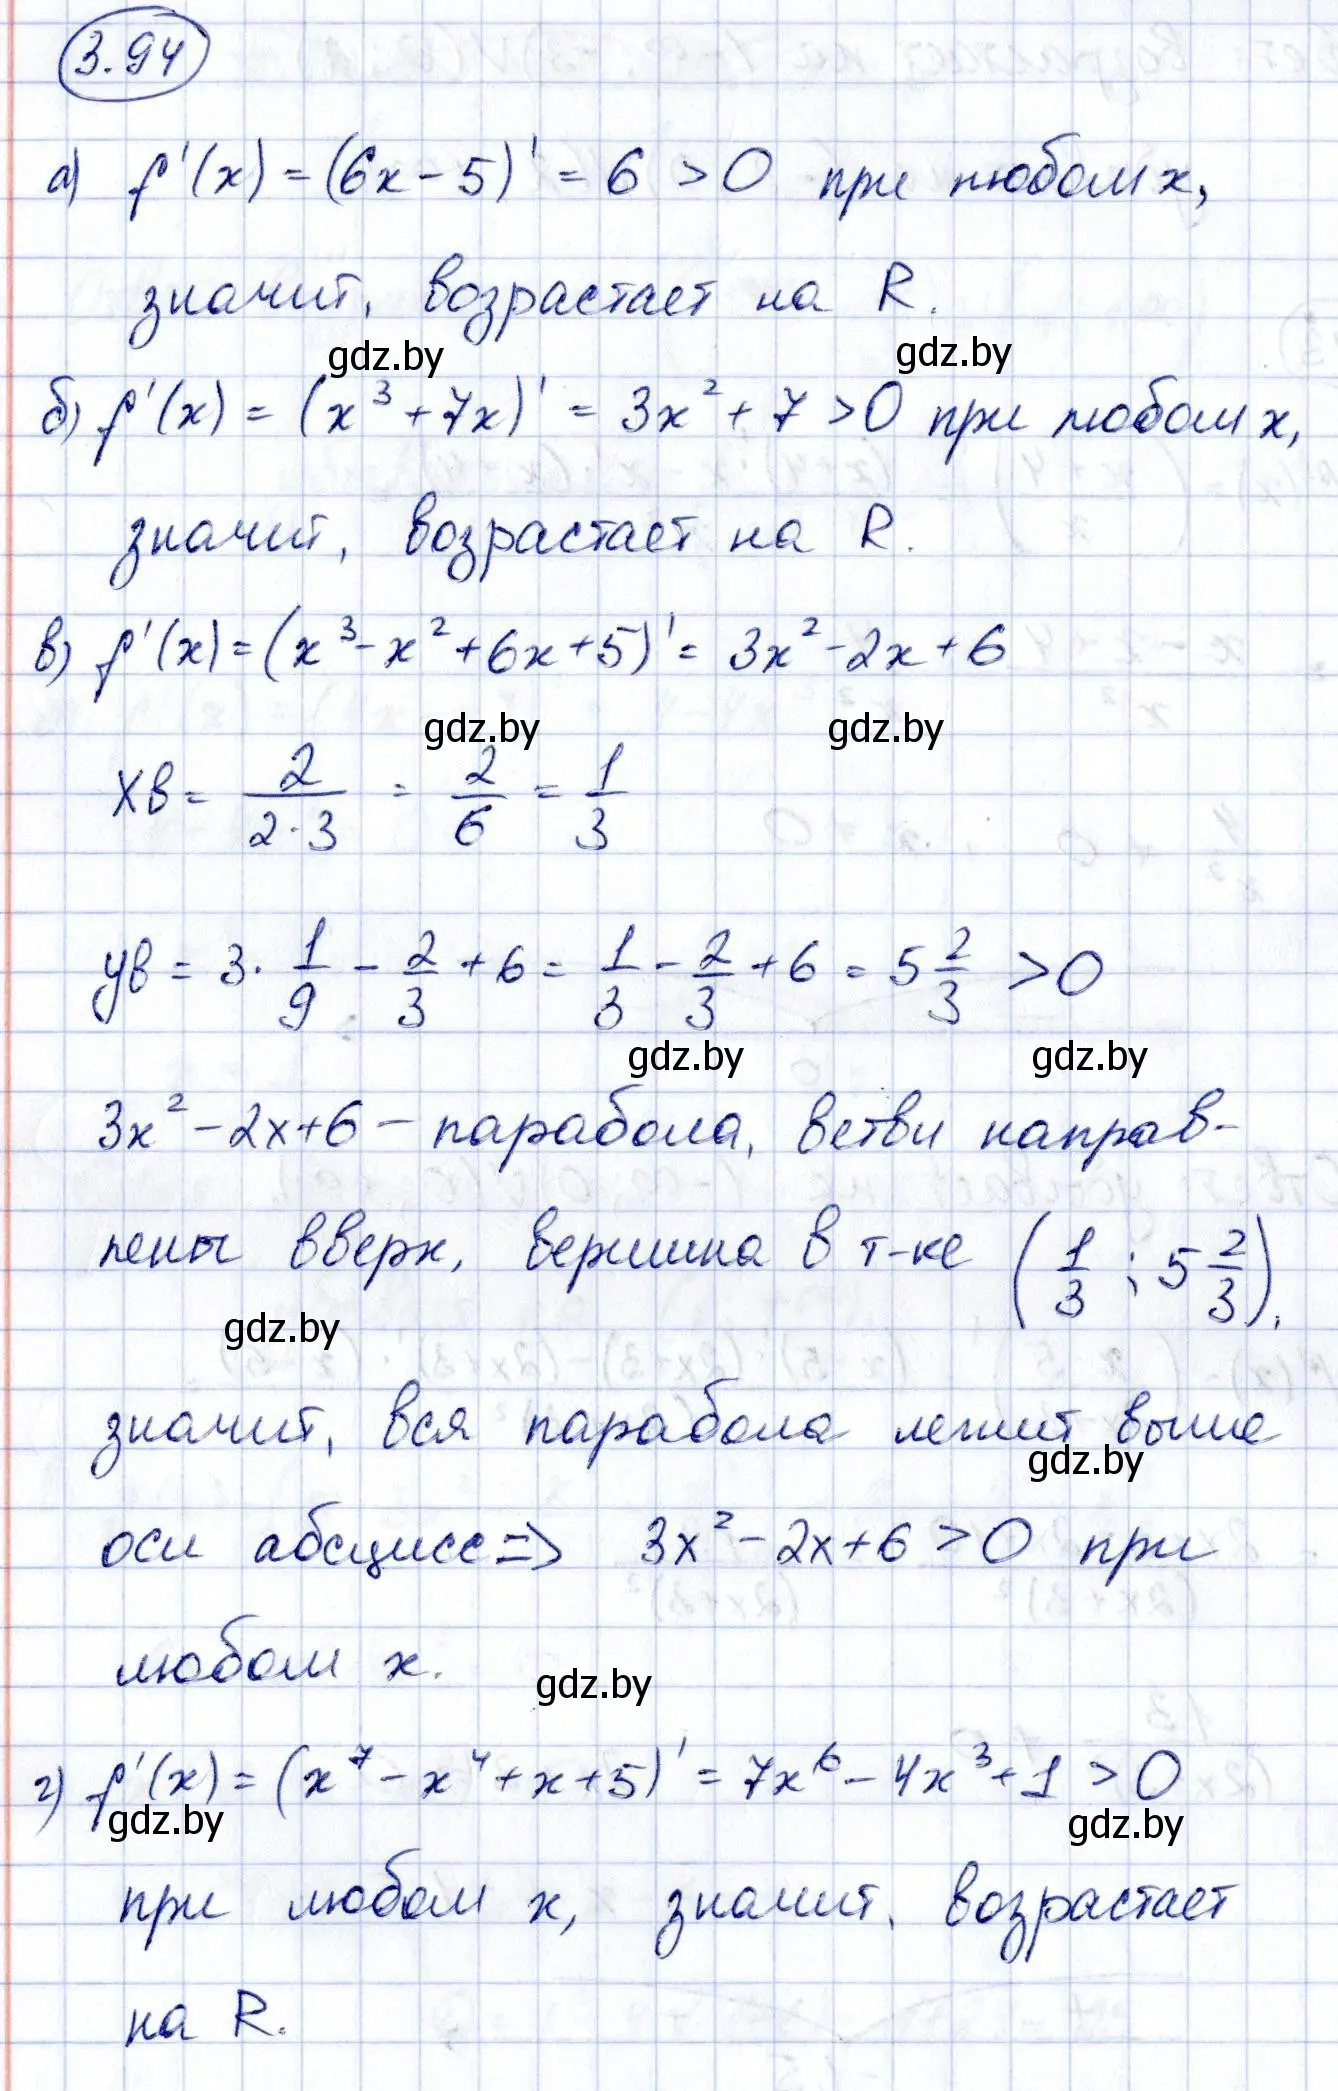 3.94
а) f'(x) = (6x - 5)' = 6 > 0 при любом x,
значит, возрастает на R.
gdz.by gdz.by
б) f'(x) = (x³ + 7x)' = 3x² + 7 > 0 при любом x,
значит, возрастает на R.
в) f'(x) = (x³ - x² + 6x + 5)' = 3x² - 2x + 6
gdz.by gdz.by
xв = 2/(2·3) = 2/6 = 1/3
yв = 3 · 1/9 - 2/3 + 6 = 1/3 - 2/3 + 6 = 5 2/3 > 0
gdz.by gdz.by
3x² - 2x + 6 - парабола, ветви направ-
лены вверх, вершина в т-ке (1/3 ; 5 2/3),
gdz.by
значит, вся парабола лежит выше
gdz.by
оси абсцисс => 3x² - 2x + 6 > 0 при
любом x.
gdz.by
г) f'(x) = (x⁷ - x⁴ + x + 5)' = 7x⁶ - 4x³ + 1 > 0
gdz.by gdz.by
при любом x, значит, возрастает
на R.